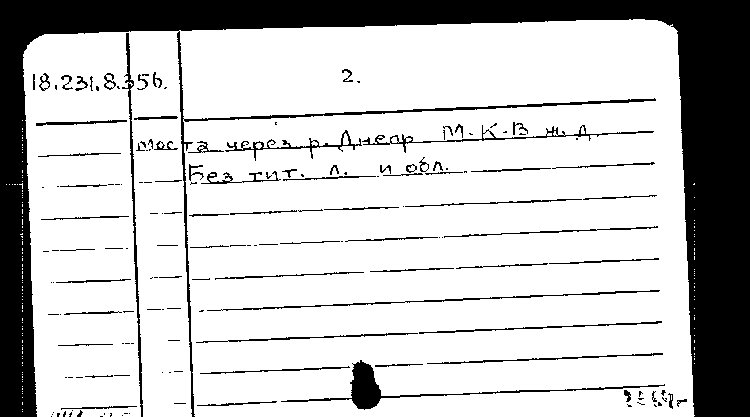 18.231.8.356. 2.
моста через р. Днепр М.-К.-В ж. д.
Без тит. л. и обл.